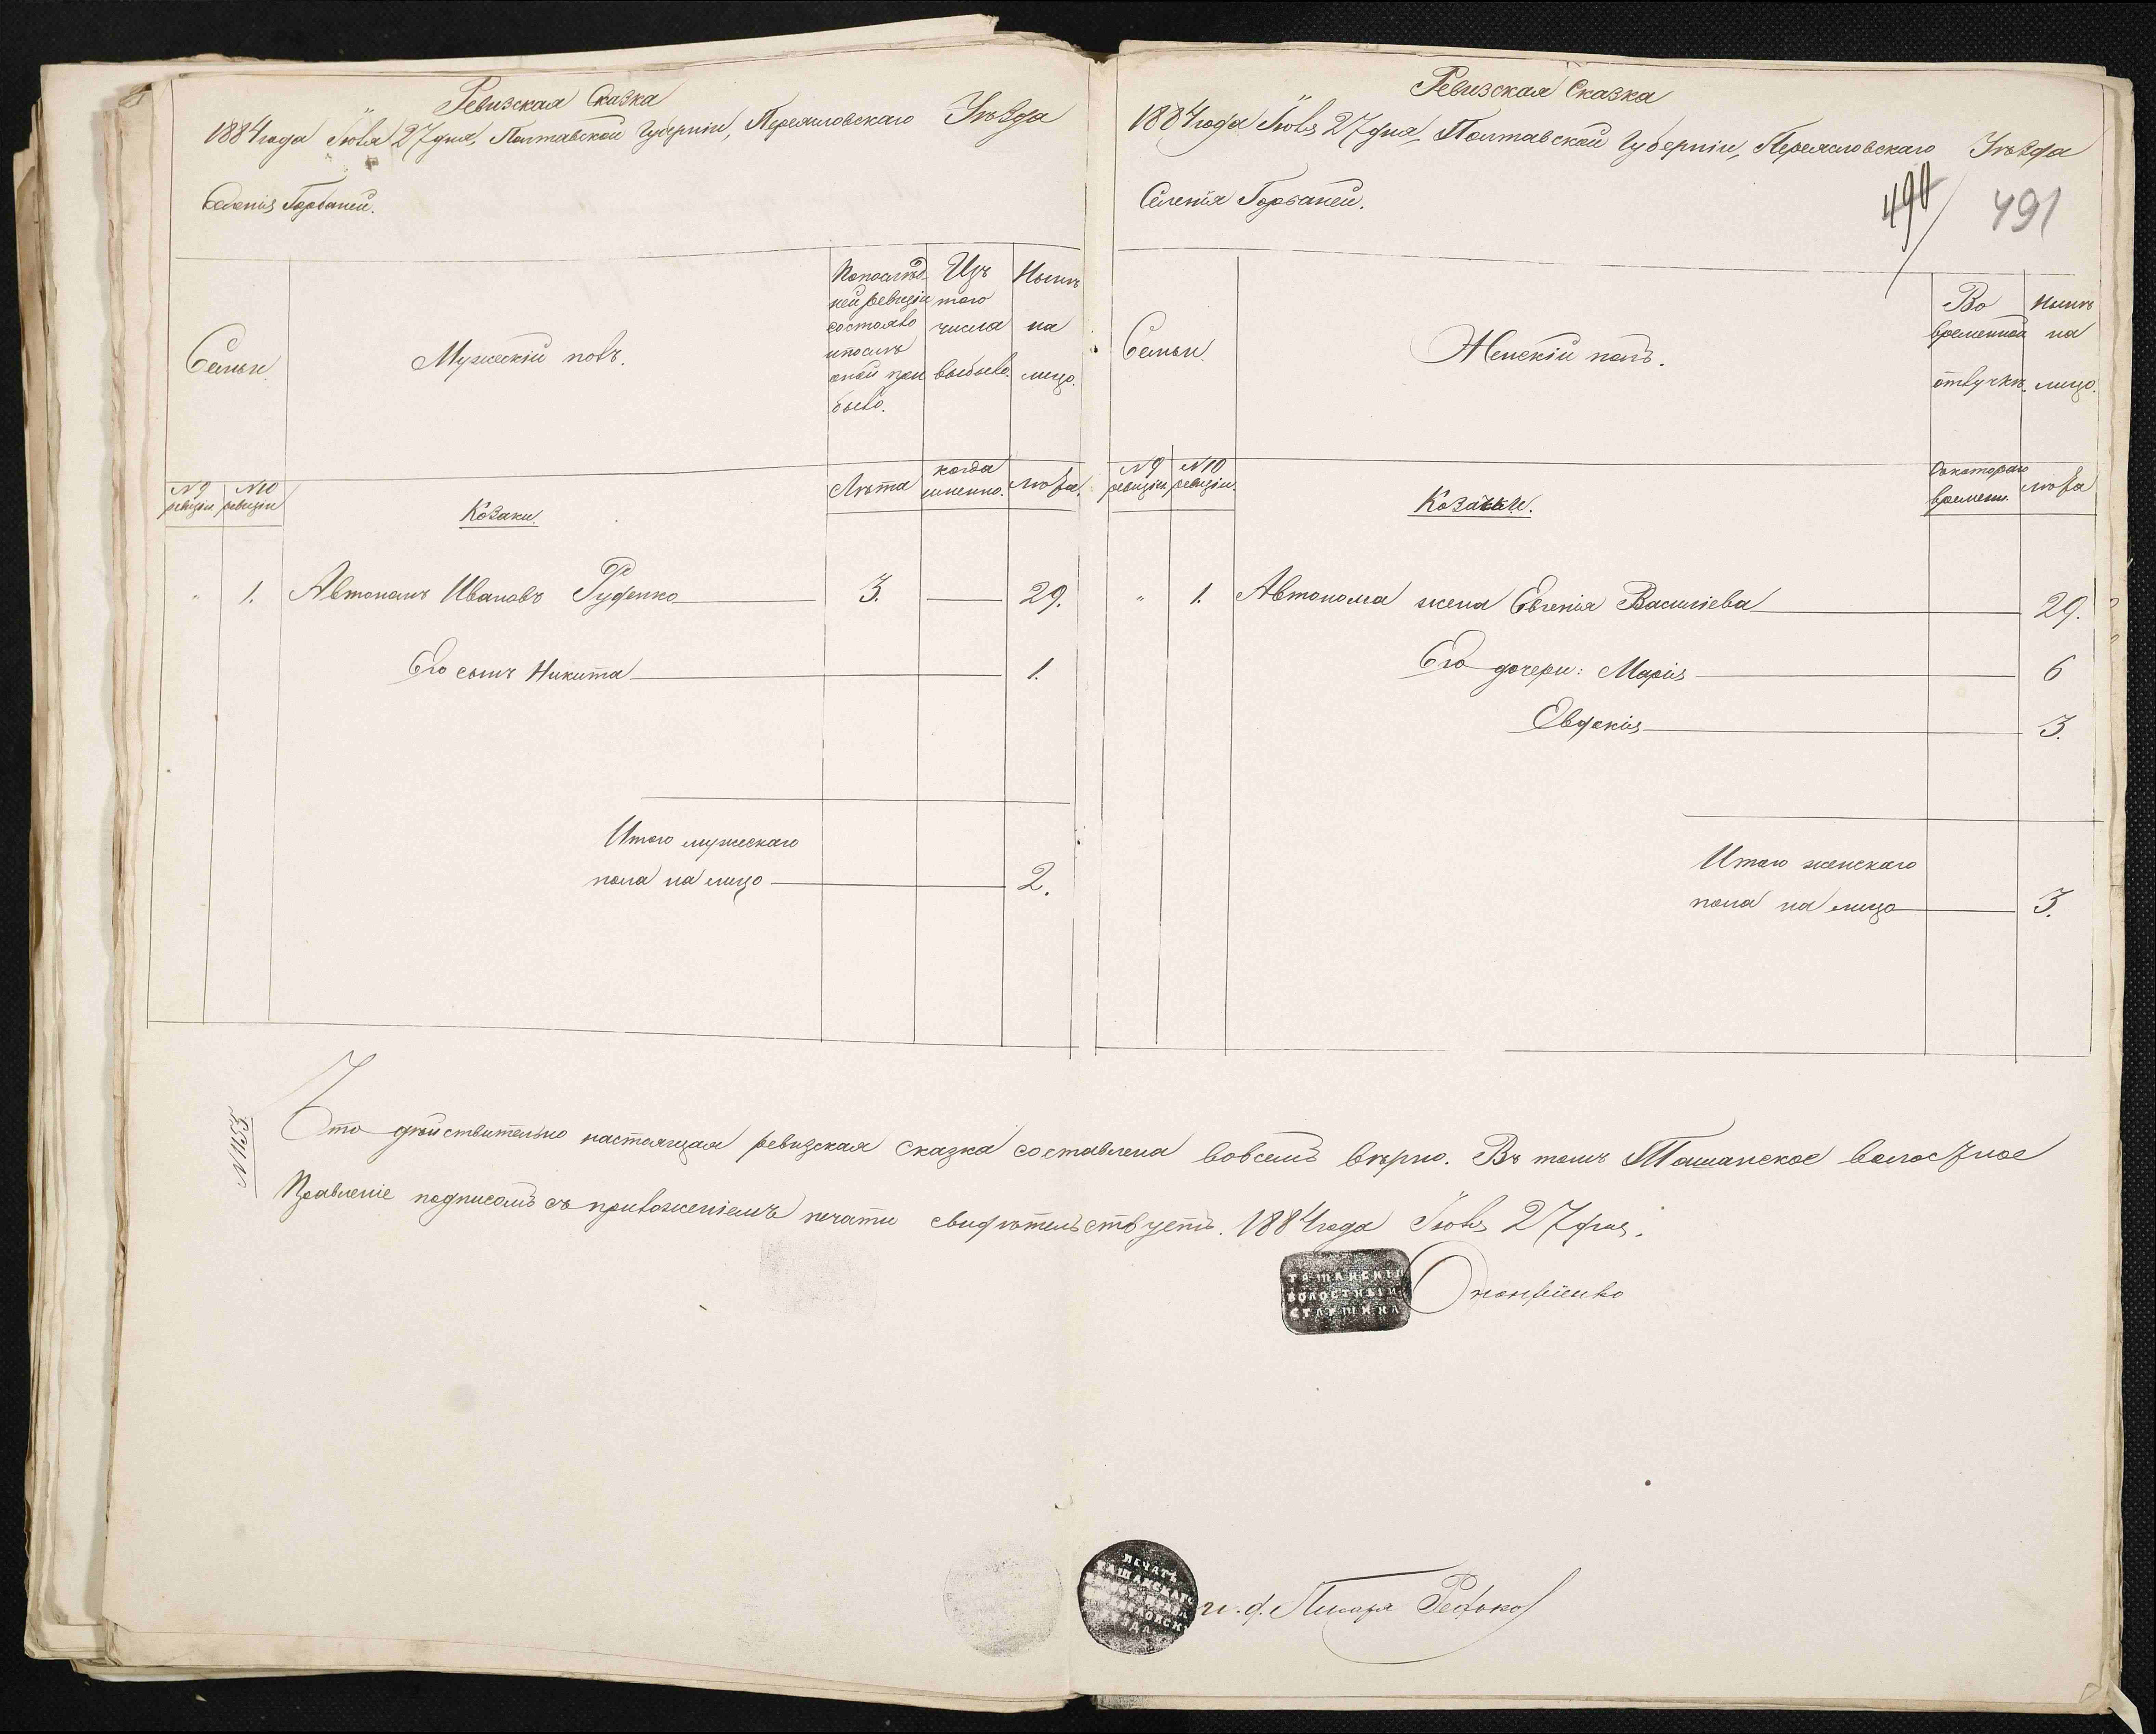 Ревизская Сказка
1884 года Іюля 27 дня, Полтавской Губерніи, Переяславскаго Уѣзда
Селенія Горбаней.
Семьи.
Мужескій полъ.
По послѣд-
ней ревизіи
состояло
и послѣ
оной при
было.
Изъ
того
числа
выбыло.
Нынѣ
на
лицо.
№ 9
ревизіи
№ 10
ревизіи
Козаки.
Лѣта
когда
именно.
Лѣта.
" 1. Автономъ Ивановъ Руденко 3. 29.
Его сынъ Никита 1.
Итого мужескаго
пола на лицо 2.
Ревизская Сказка
1884 года Іюля 27 дня, Полтавской Губерніи, Переяславскаго Уѣзда
Селенія Горбаней.
490 491
Семьи.
Женскій полъ.
Во
временной
отлучкѣ.
Нынѣ
на
лицо.
№ 9
ревизіи
№ 10
ревизіи.
Козачки.
Съ котораго
времени.
Лѣта
" 1. Автонома жена Евгенія Василіева 29.
Его дочери: Марія 6
Евдокія 3.
Итого женскаго
пола на лицо 3.
№ 1155
Что дѣйствительно настоящая ревизская сказка составлена во всемъ вѣрно. Въ томъ Ташанское волостное
Правленіе подписомъ съ приложеніемъ печати свидѣтельствуетъ. 1884 года Іюля 27 дня.
ТАШАНСКІЙ
ВОЛОСТНЫЙ
СТАРШИНА
ПЕЧАТЬ
ТАШАНСКАГО
и. д. Писаря